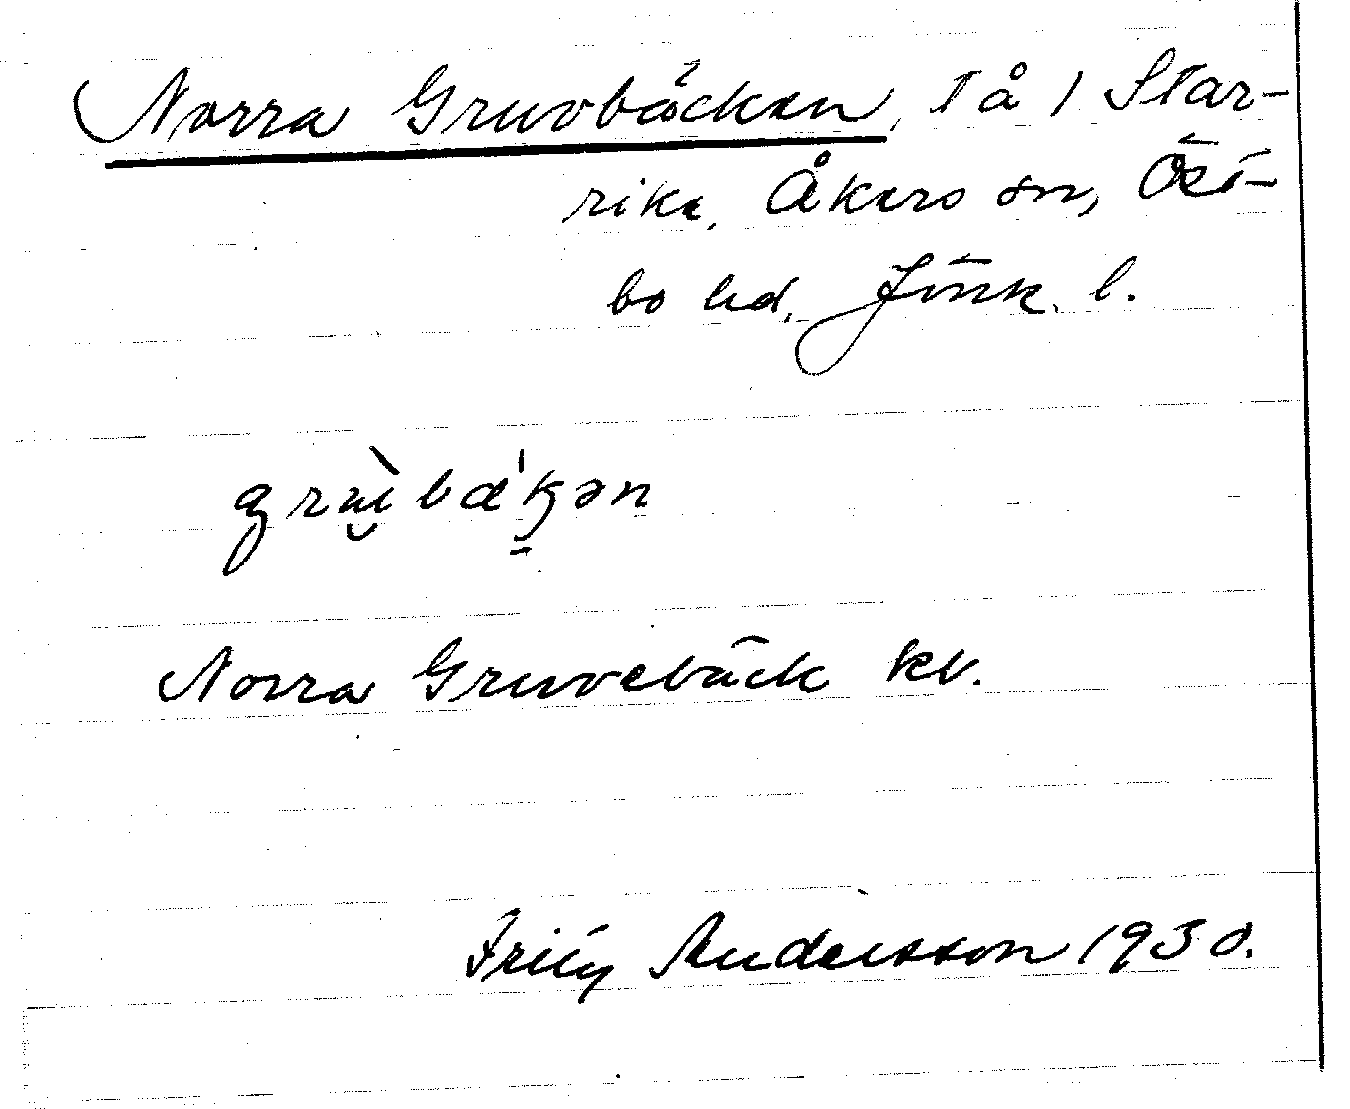 Norra Gruvbäcken, Tå 1 Star-
rike, Åkers sn, Öst-
bo hd, Jönk. l.
grùbǽkən
Norra Gruvebäck kb.
Fritz Andersson 1930.